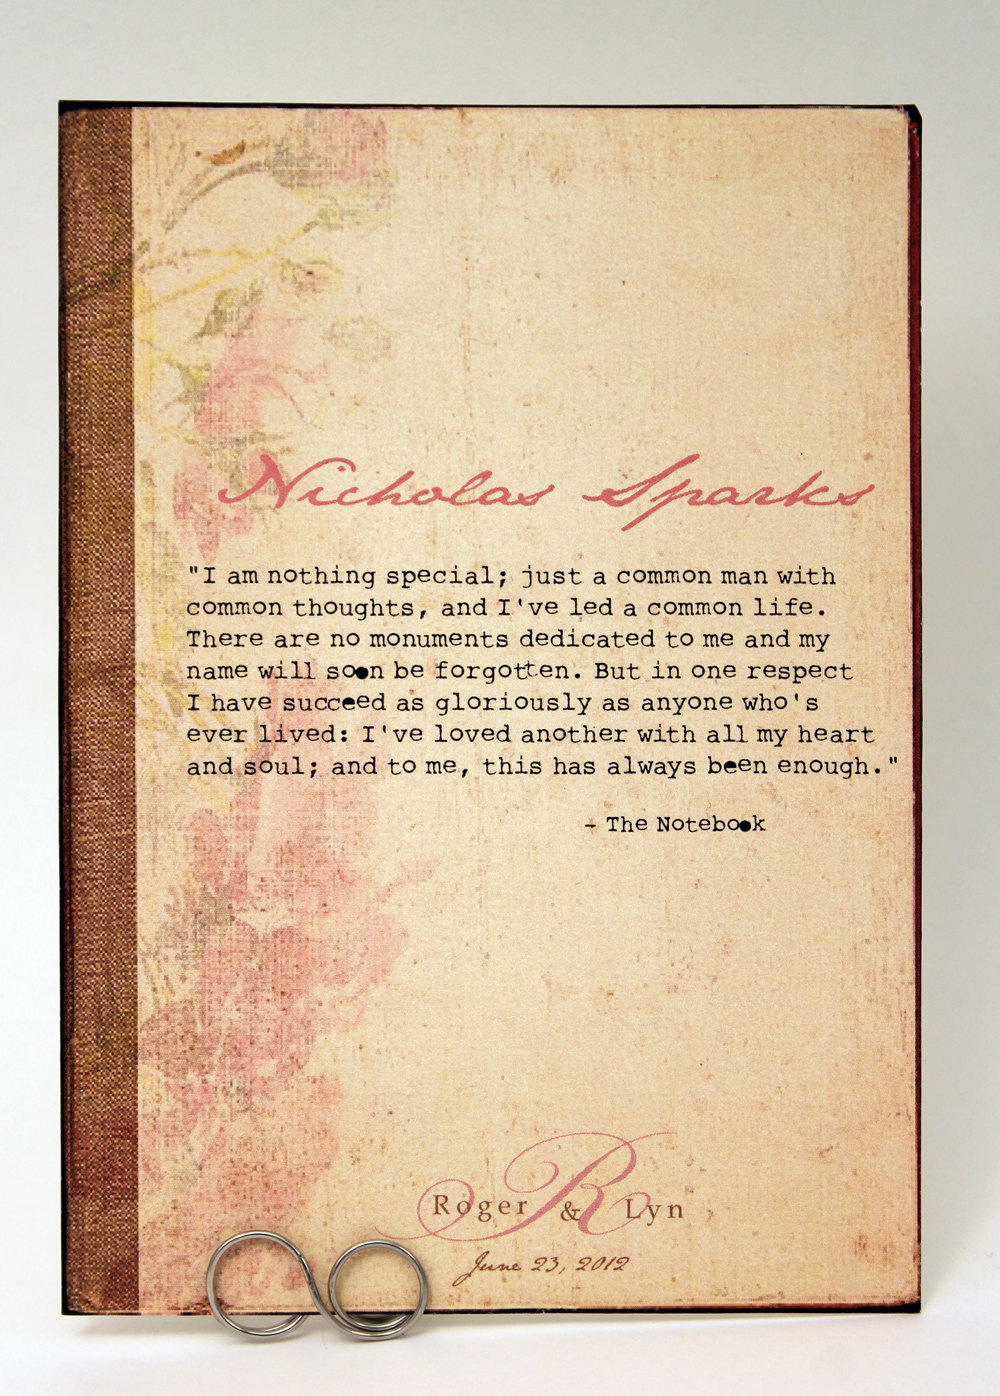 Nicholas Sparks
"I am nothing special; just a common man with
common thoughts, and I've led a common life.
There are no monuments dedicated to me and my
name will soon be forgotten. But in one respect
I have succeed as gloriously as anyone who's
ever lived: I've loved another with all my heart
and soul; and to me, this has always been enough."
- The Notebook
R
Roger & Lyn
June 23, 2012